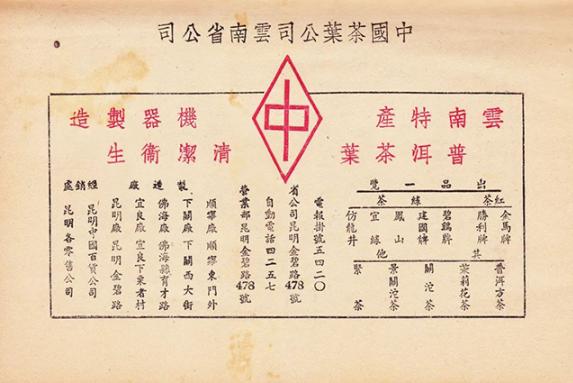 中國茶葉公司雲南省公司
雲南特產
機器製造
中
普洱茶葉
清潔衛生
出品一覽
紅茶
綠茶
金馬牌
勝利牌
碧鷄牌
建國牌
鳳山
宜綠
仿龍井
其他
普洱方茶
茉莉花茶
關沱茶
景關沱茶
緊茶
電報掛號五四二〇
省公司昆明金碧路478號
自動電話四二五七
營業部昆明金碧路478號
製造廠
順寧廠 順寧東門外
下關廠 下關西大街
佛海廠 佛海縣育才路
宜良廠 宜良下東者村
昆明廠 昆明金碧路
經銷處
昆明中國百貨公司
昆明各零售公司